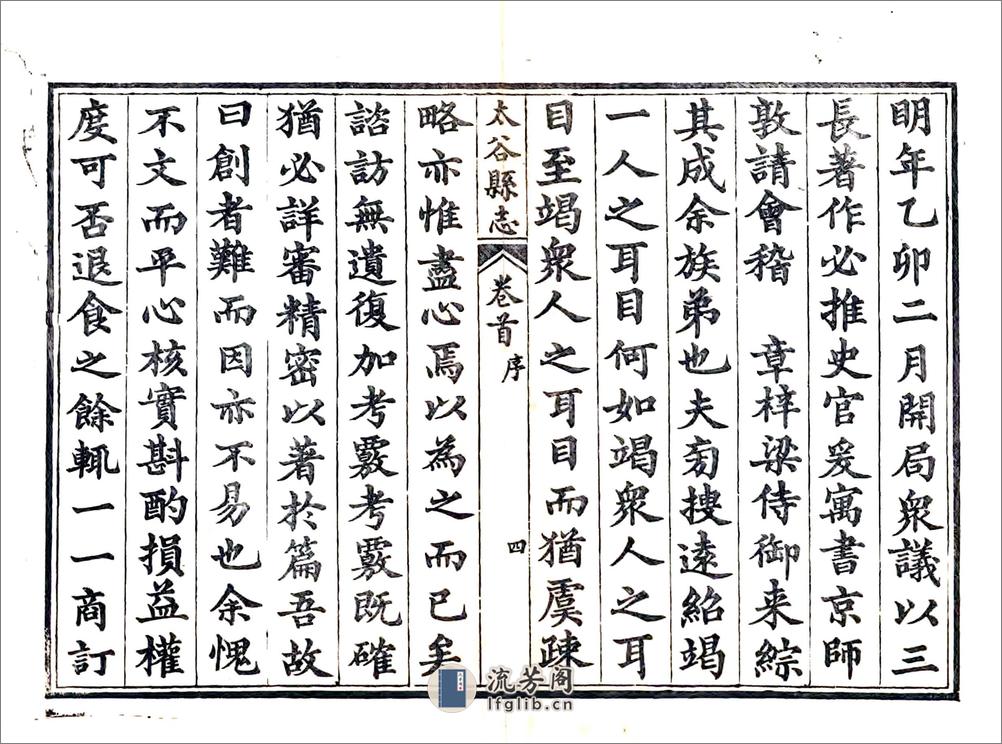 明年乙卯二月開局衆議以三
長著作必推史官爰寓書京師
敦請會稽　章梓梁侍御来綜
其成余族弟也夫旁搜遠紹竭
一人之耳目何如竭衆人之耳
目至竭衆人之耳目而猶虞疎
太谷縣志 卷首 序 四
略亦惟盡心焉以為之而已矣
諮訪無遺復加考覈考覈既確
猶必詳審精密以著於篇吾故
曰創者難而因亦不易也余愧
不文而平心核實斟酌損益權
度可否退食之餘輒一一商訂
流芳阁
lfglib.cn